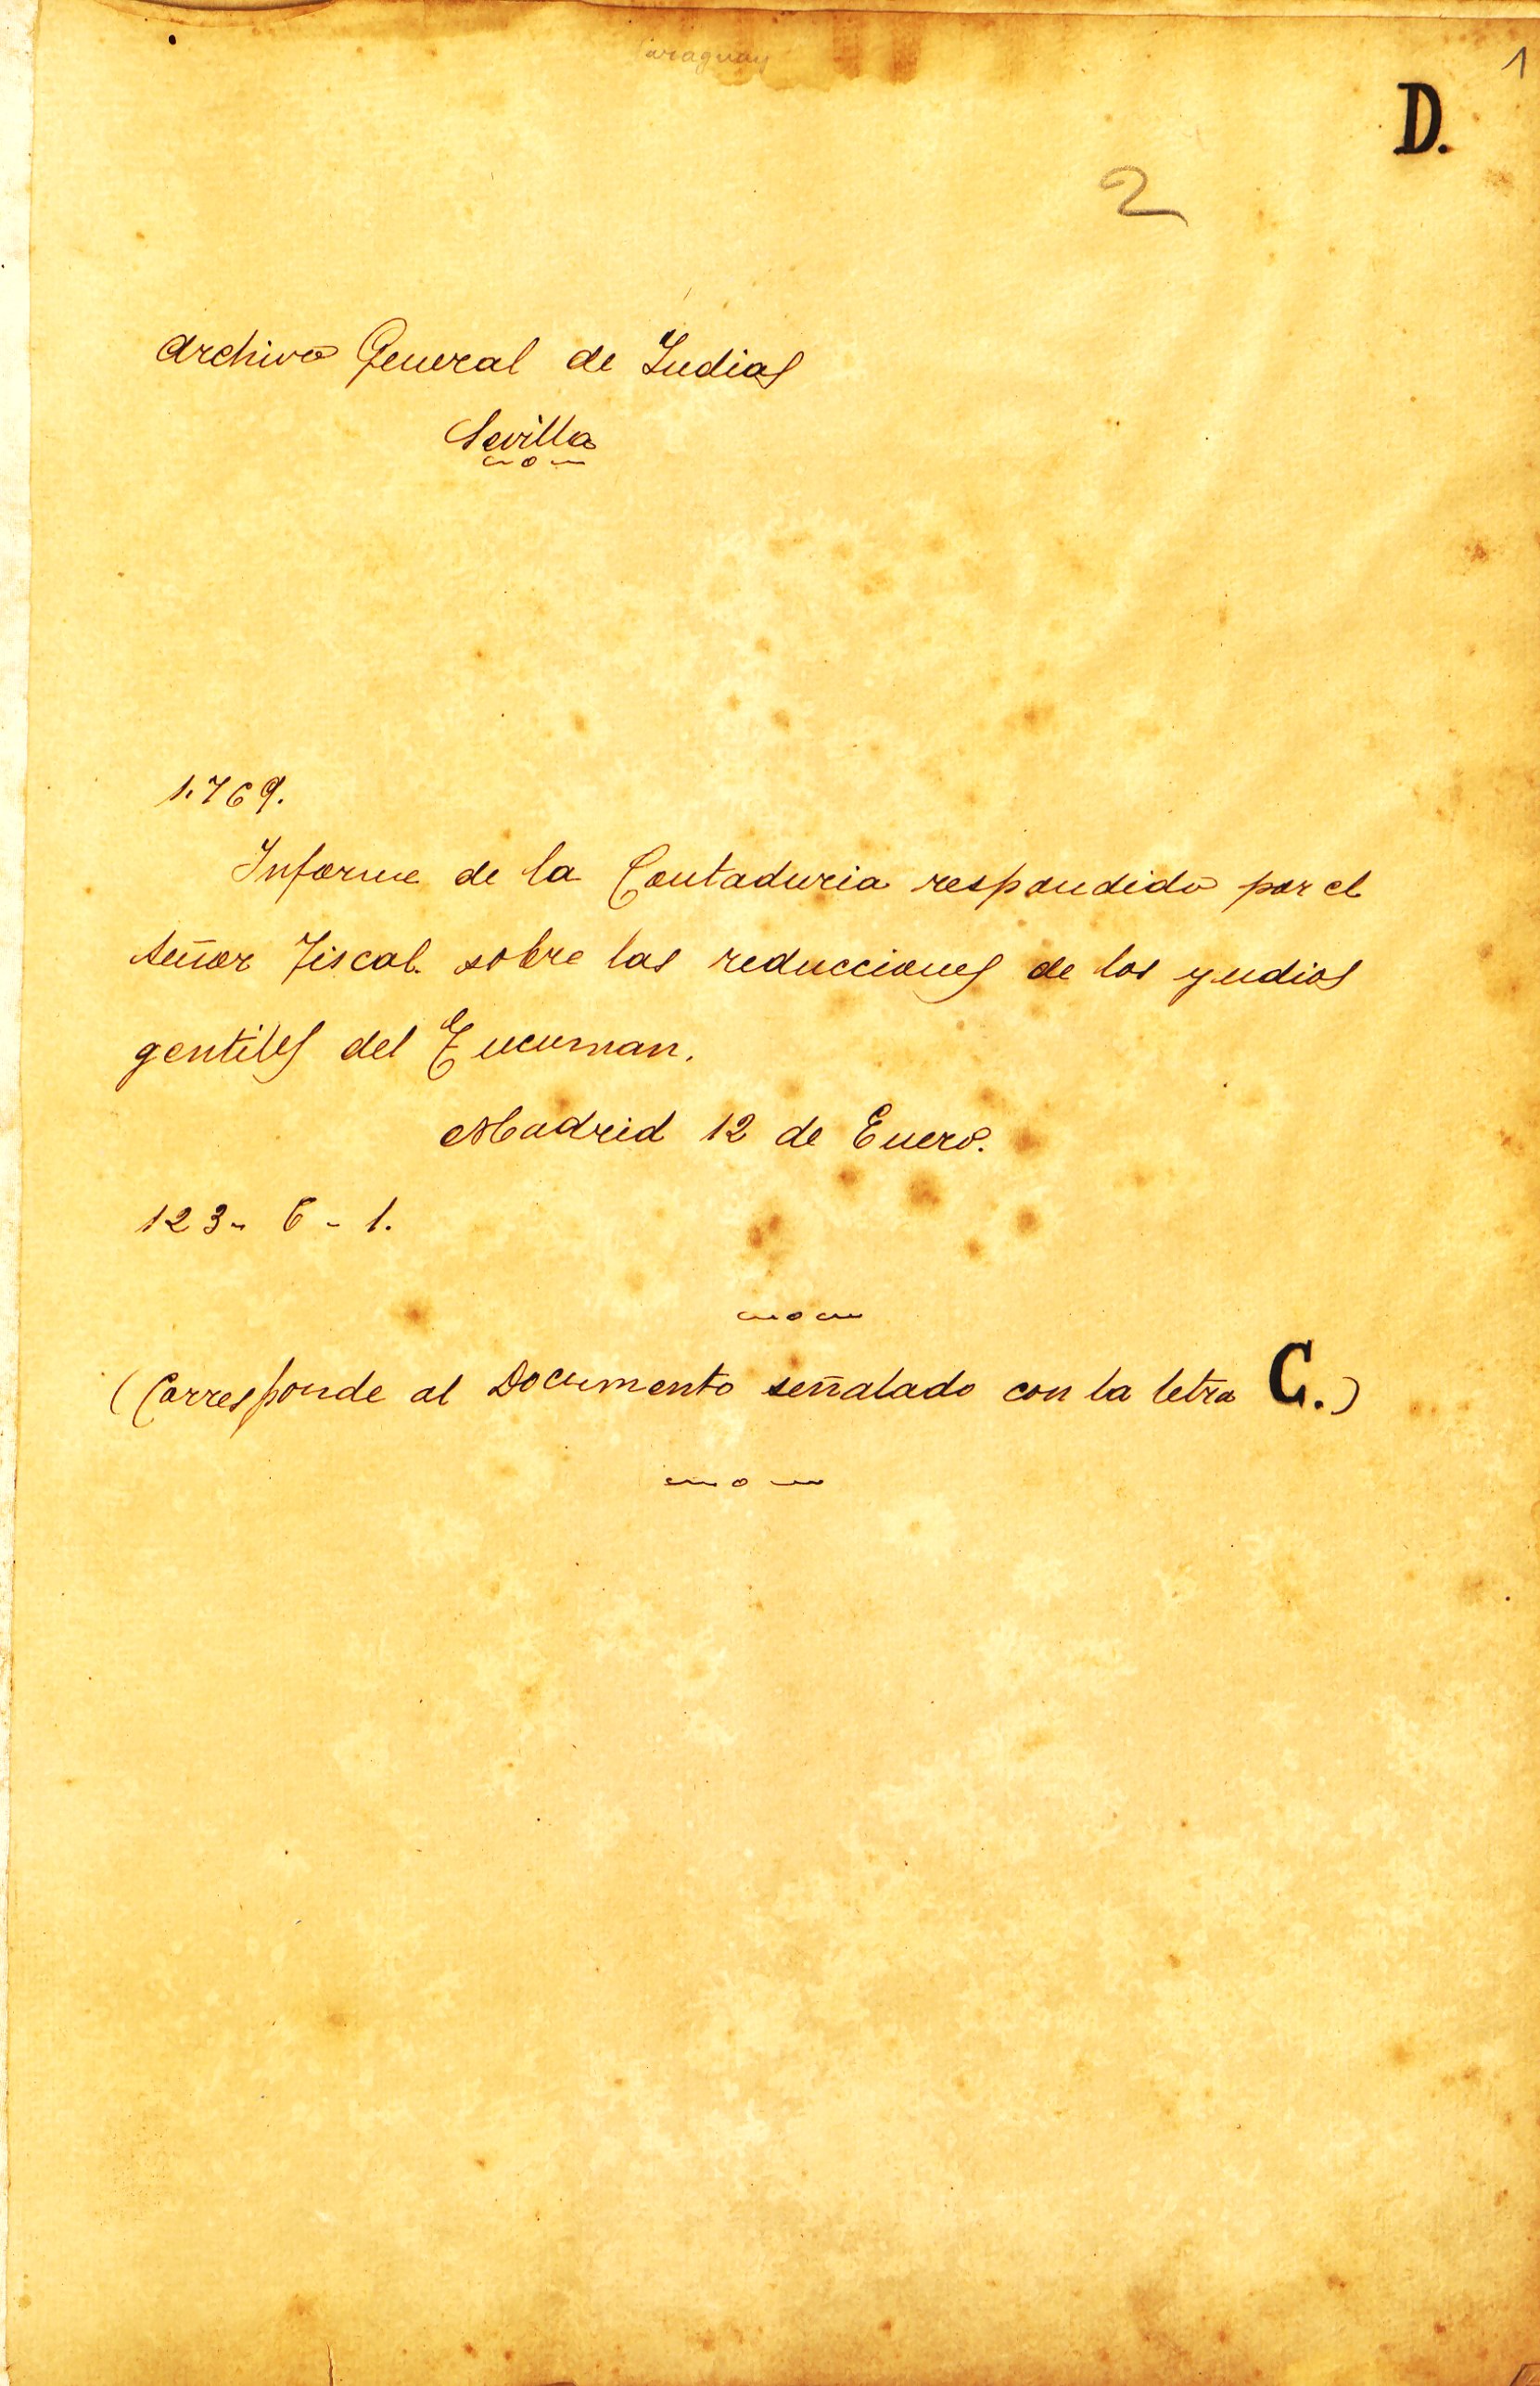 Paraguay
1
D.
2
Archivo General de Indias
Sevilla
1.769.
Informe de la Contaduria respondido por el
señor Fiscal sobre las reducciones de los yndios
gentiles del Tucuman.
Madrid 12 de Enero.
123- 6 - 1.
(Corresponde al Documento señalado con la letra C.)